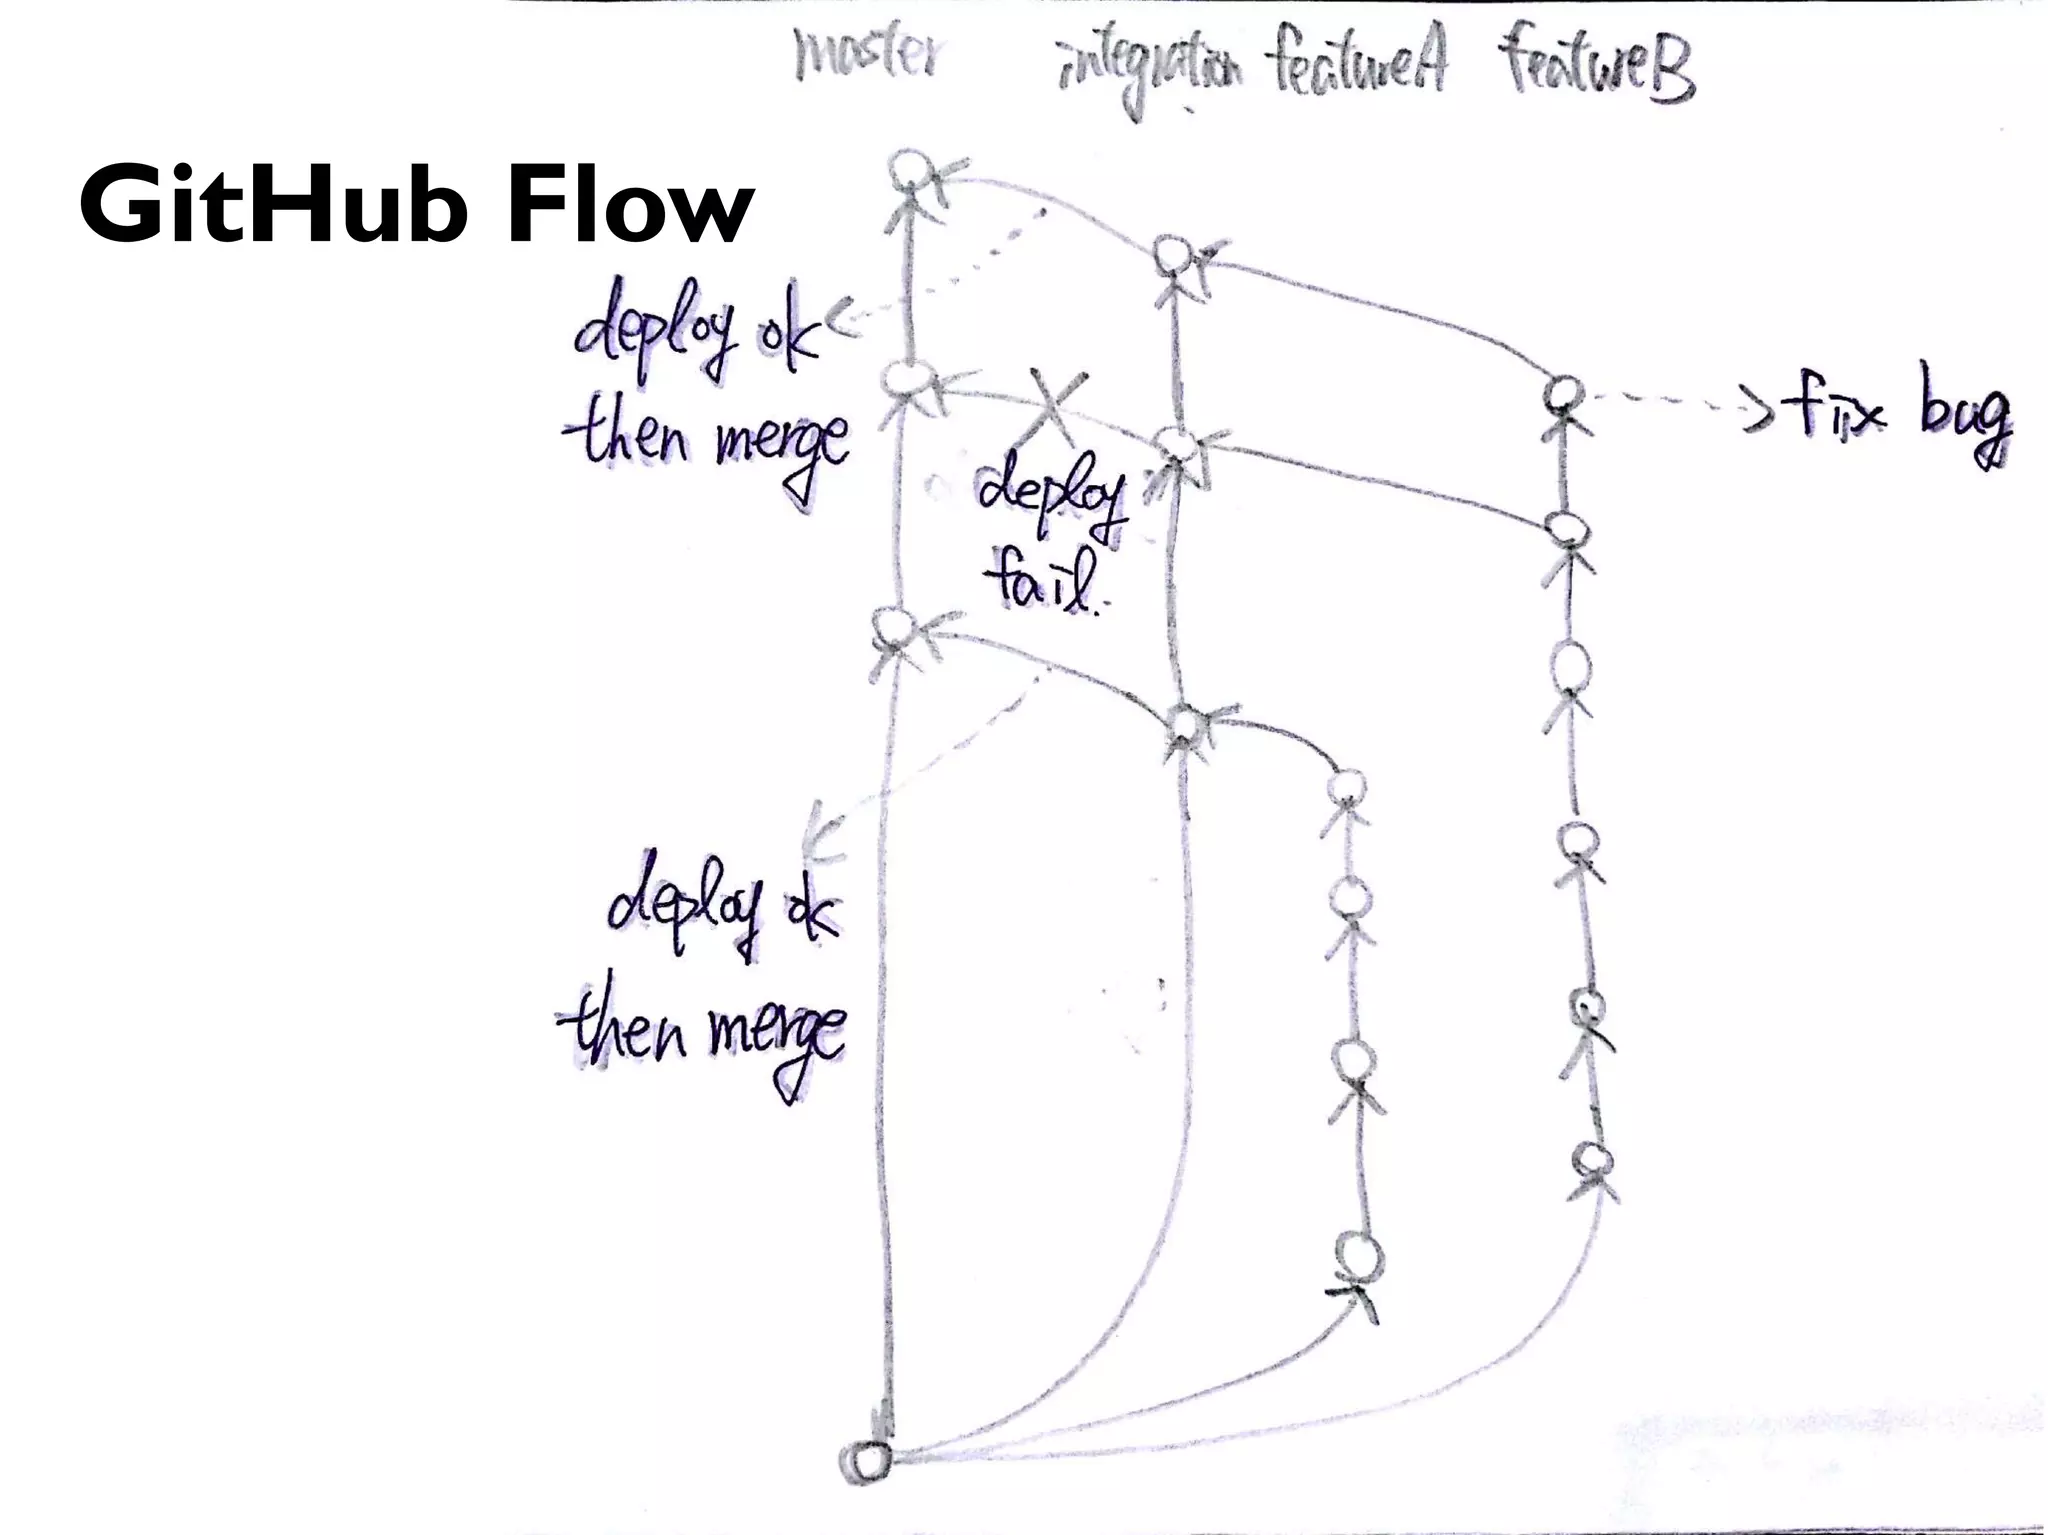 master integration featureA featureB
GitHub Flow
deploy ok
then merge
fix bug
deploy
fail.
deploy ok
then merge